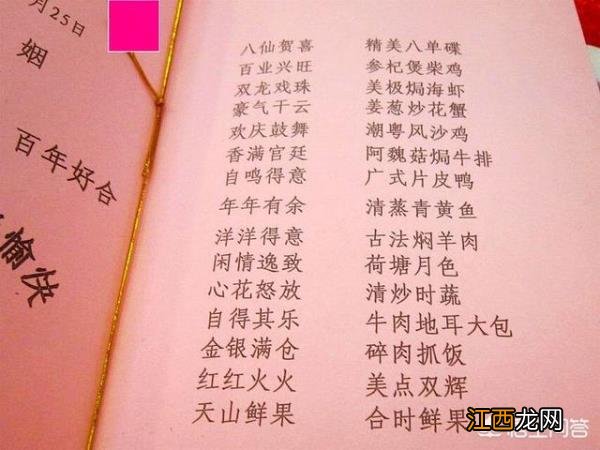 月25日
姻
百年好合
愉快
八仙贺喜 精美八单碟
百业兴旺 参杞煲柴鸡
双龙戏珠 美极焗海虾
豪气干云 姜葱炒花蟹
欢庆鼓舞 潮粤风沙鸡
香满宫廷 阿魏菇焗牛排
自鸣得意 广式片皮鸭
年年有余 清蒸青黄鱼
洋洋得意 古法焖羊肉
闲情逸致 荷塘月色
心花怒放 清炒时蔬
自得其乐 牛肉地耳大包
金银满仓 碎肉抓饭
红红火火 美点双辉
天山鲜果 合时鲜果
江西龙网